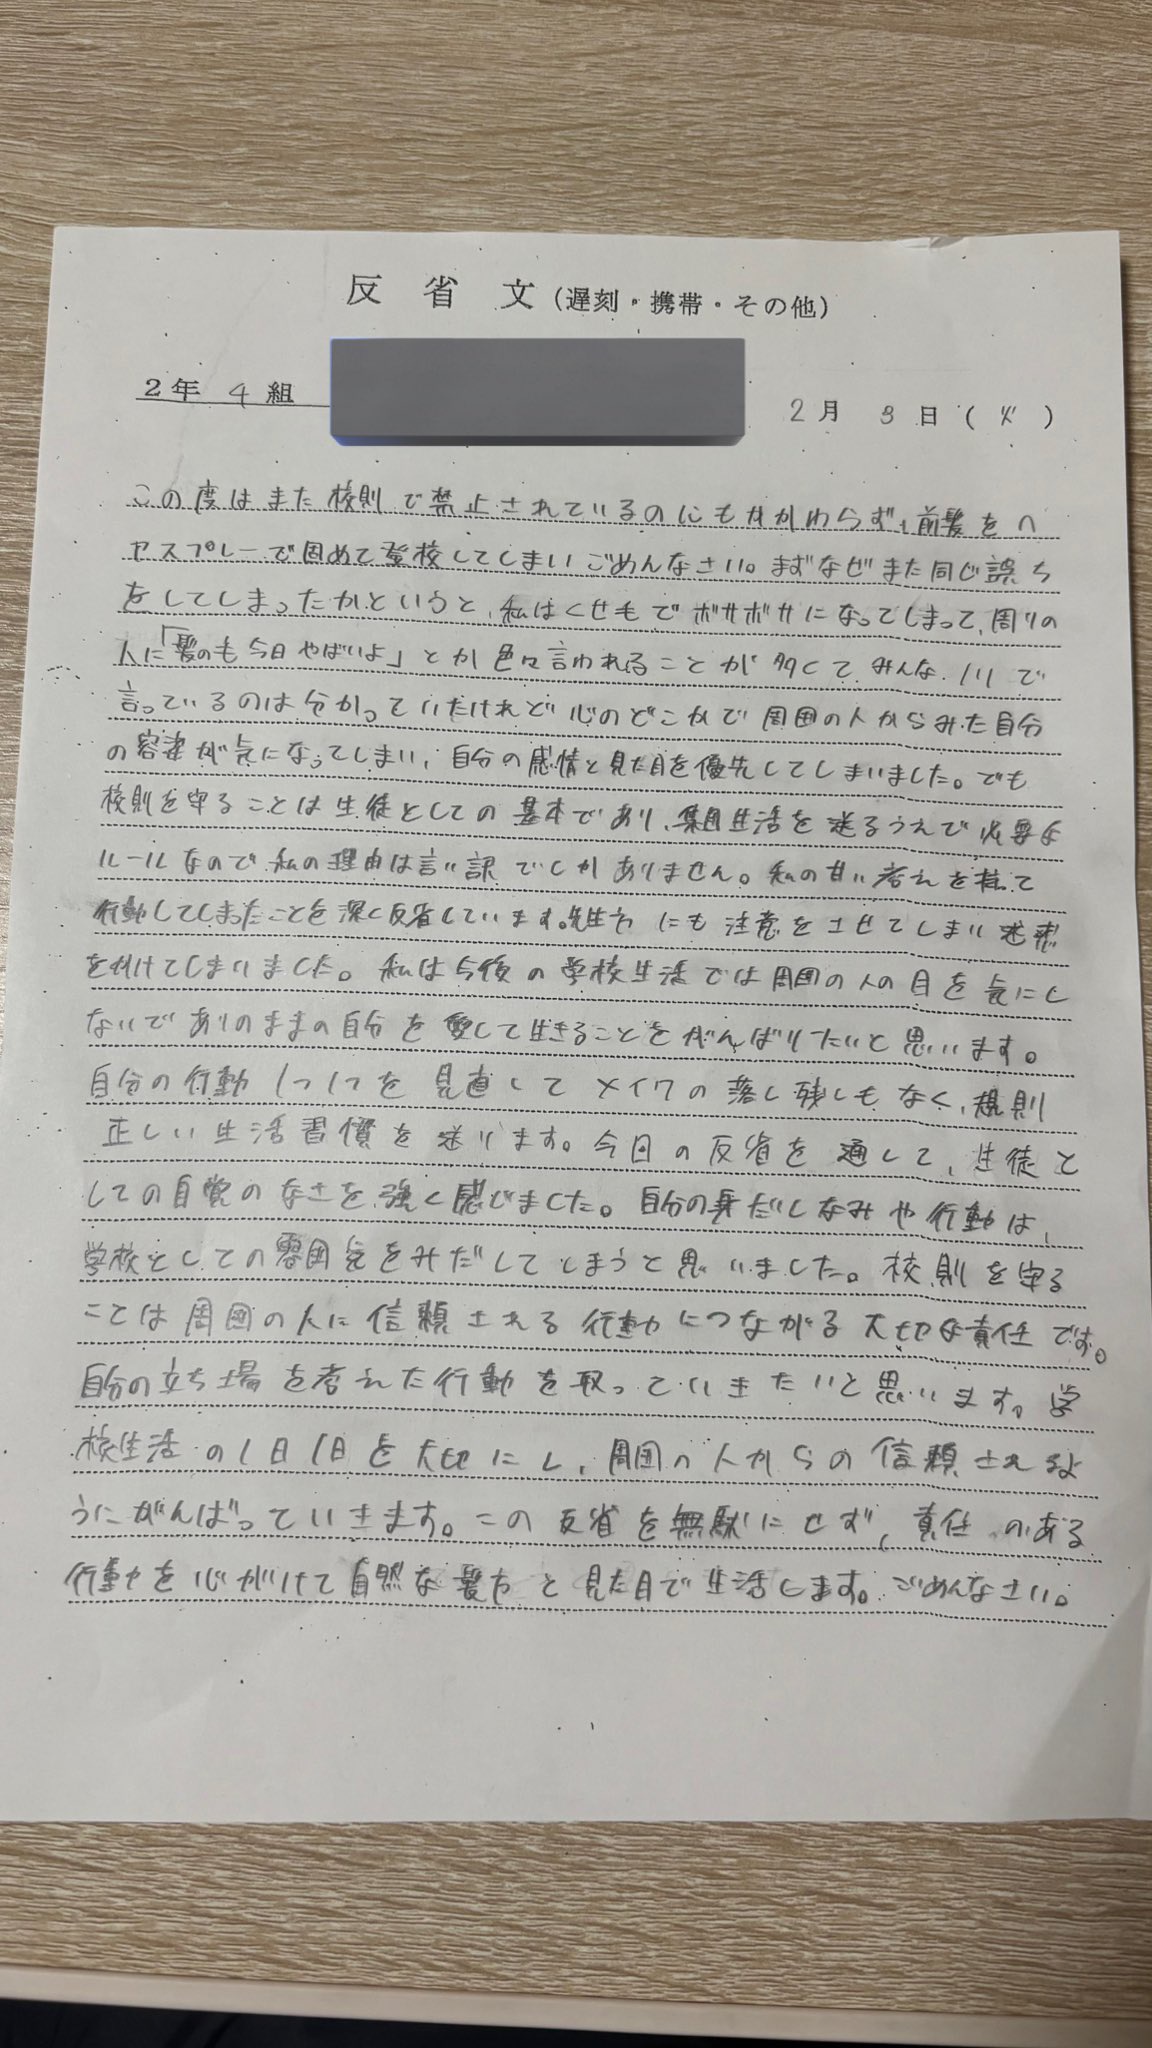 反省文(遅刻・携帯・その他)
2年 4 組
2月 3日(火)
この度はまた校則で禁止されているのにもかかわらず、前髪をヘ
ヤスプレーで固めて登校してしまいごめんなさい。まずなぜまた同じ誤ち
をしてしまったかというと、私はくせもでボサボサになってしまって、周りの
人に「髪のも今日やばいよ」とか色々言われることが多くて、みんなノリで
言っているのは分かっていたけれど心のどこかで周囲の人からみた自分
の容姿が気になってしまい、自分の感情と見た目を優先してしまいました。でも
校則を守ることは生徒としての基本であり、集団生活を送るうえで必要な
ルールなので私の理由は言い訳でしかありません。私の甘い考えを持って
行動してしまったことを深く反省しています。先生方にも注意をさせてしまい迷惑
をかけてしまいました。私は今後の学校生活では周囲の人の目を気にし
ないでありのままの自分を愛して生きることをがんばりたいと思います。
自分の行動1つ1つを見直してメイクの落し残しもなく、規則
正しい生活習慣を送ります。今日の反省を通して、生徒と
しての自覚のなさを強く感じました。自分の身だしなみや行動は、
学校としての雰囲気をみだしてしまうと思いました。校則を守る
ことは周囲の人に信頼される行動につながる大切な責任です。
自分の立ち場を考えた行動を取っていきたいと思います。学
校生活の1日1日を大切にし、周囲の人からの信頼されるよ
うにがんばっていきます。この反省を無駄にせず、責任のある
行動を心がけて自然な髪方と見た目で生活します。ごめんなさい。